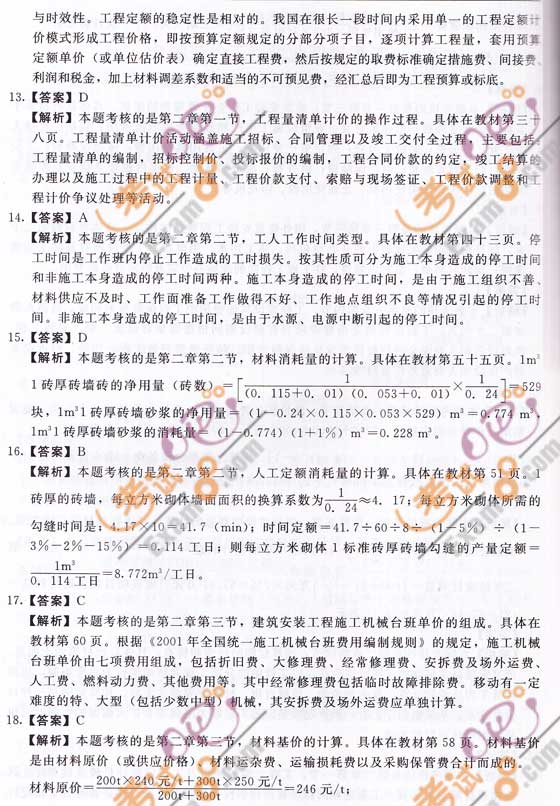 与时效性。工程定额的稳定性是相对的。我国在很长一段时间内采用单一的工程定额计
价模式形成工程价格，即按预算定额规定的分部分项子目，逐项计算工程量，套用预算
定额单价（或单位估价表）确定直接工程费，然后按规定的取费标准确定措施费、间接费、
利润和税金，加上材料调差系数和适当的不可预见费，经汇总后即为工程预算或标底。
13.【答案】D
【解析】本题考核的是第二章第一节，工程量清单计价的操作过程。具体在教材第三十
八页。工程量清单计价活动涵盖施工招标、合同管理以及竣工交付全过程，主要包括：
工程量清单的编制，招标控制价、投标报价的编制，工程合同价款的约定，竣工结算的
办理以及施工过程中的工程计量、工程价款支付、索赔与现场签证、工程价款调整和工
程计价争议处理等活动。
14.【答案】A
【解析】本题考核的是第二章第二节，工人工作时间类型。具体在教材第四十三页。停
工时间是工作班内停止工作造成的工时损失。按其性质可分为施工本身造成的停工时间
和非施工本身造成的停工时间两种。施工本身造成的停工时间，是由于施工组织不善、
材料供应不及时、工作面准备工作做得不好、工作地点组织不良等情况引起的停工时
间。非施工本身造成的停工时间，是由于水源、电源中断引起的停工时间。
15.【答案】D
【解析】本题考核的是第二章第二节，材料消耗量的计算。具体在教材第五十五页。1m³
1砖厚砖墙砖的净用量（砖数）=[1/(0.115+0.01)(0.053+0.01)×1/0.24]=529
块，1m³1砖厚砖墙砂浆的净用量=(1-0.24×0.115×0.053×529) m³=0.774 m³，
1m³1砖厚砖墙砂浆的消耗量=(1-0.774)(1+1%) m³=0.228 m³。
16.【答案】B
【解析】本题考核的是第二章第二节，人工定额消耗量的计算。具体在教材第51页。1
砖厚的砖墙，每立方米砌体墙面面积的换算系数为1/0.24≈4.17；每立方米砌体所需的
勾缝时间是：4.17×10=41.7 (min)；时间定额=41.7÷60÷8÷(1-5%)÷(1-
3%-2%-15%)=0.114工日；则每立方米砌体1标准砖厚砖墙勾缝的产量定额=
1m³/0.114工日=8.772m³/工日。
17.【答案】C
【解析】本题考核的是第二章第三节，建筑安装工程施工机械台班单价的组成。具体在
教材第60页。根据《2001年全国统一施工机械台班费用编制规则》的规定，施工机械
台班单价由七项费用组成，包括折旧费、大修理费、经常修理费、安拆费及场外运费、
人工费、燃料动力费、其他费用等。其中经常修理费包括临时故障排除费。移动有一定
难度的特、大型（包括少数中型）机械，其安拆费及场外运费应单独计算。
18.【答案】C
【解析】本题考核的是第二章第三节，材料基价的计算。具体在教材第58页。材料基价
是由材料原价（或供应价格）、材料运杂费、运输损耗费以及采购保管费合计而成的。
材料原价=200t×240元/t+300t×250元/t/200t+300t=246元/t；